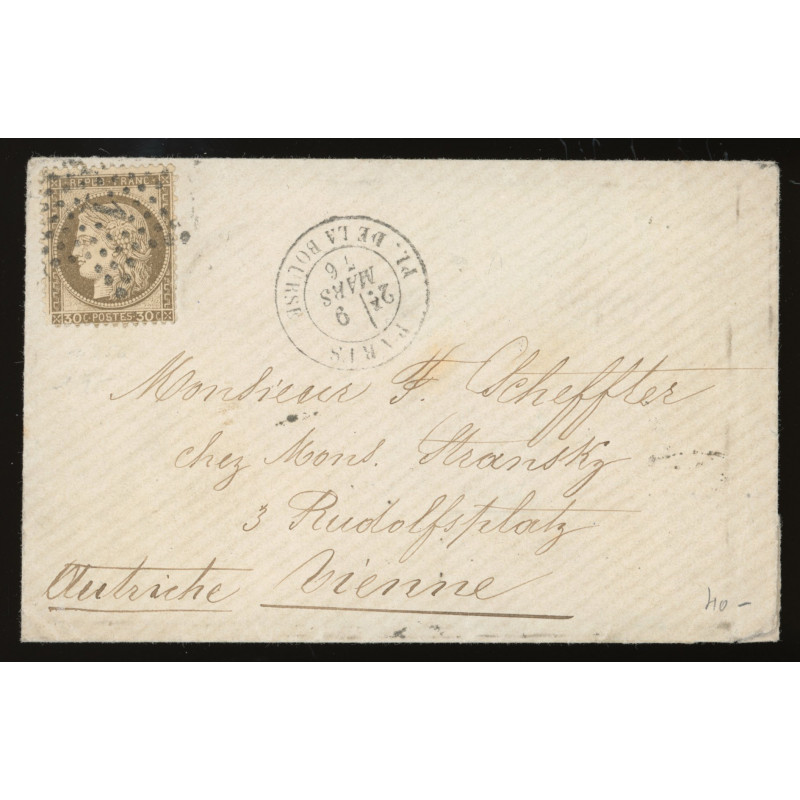 REPUB. FRANC.
30 C. POSTES. 30 C.
1
PARIS PL. DE LA BOURSE
9
24 MARS
76
Monsieur F. Scheffter
chez Mons. Stransky
3 Rudolfsplatz
Autriche Vienne
40-